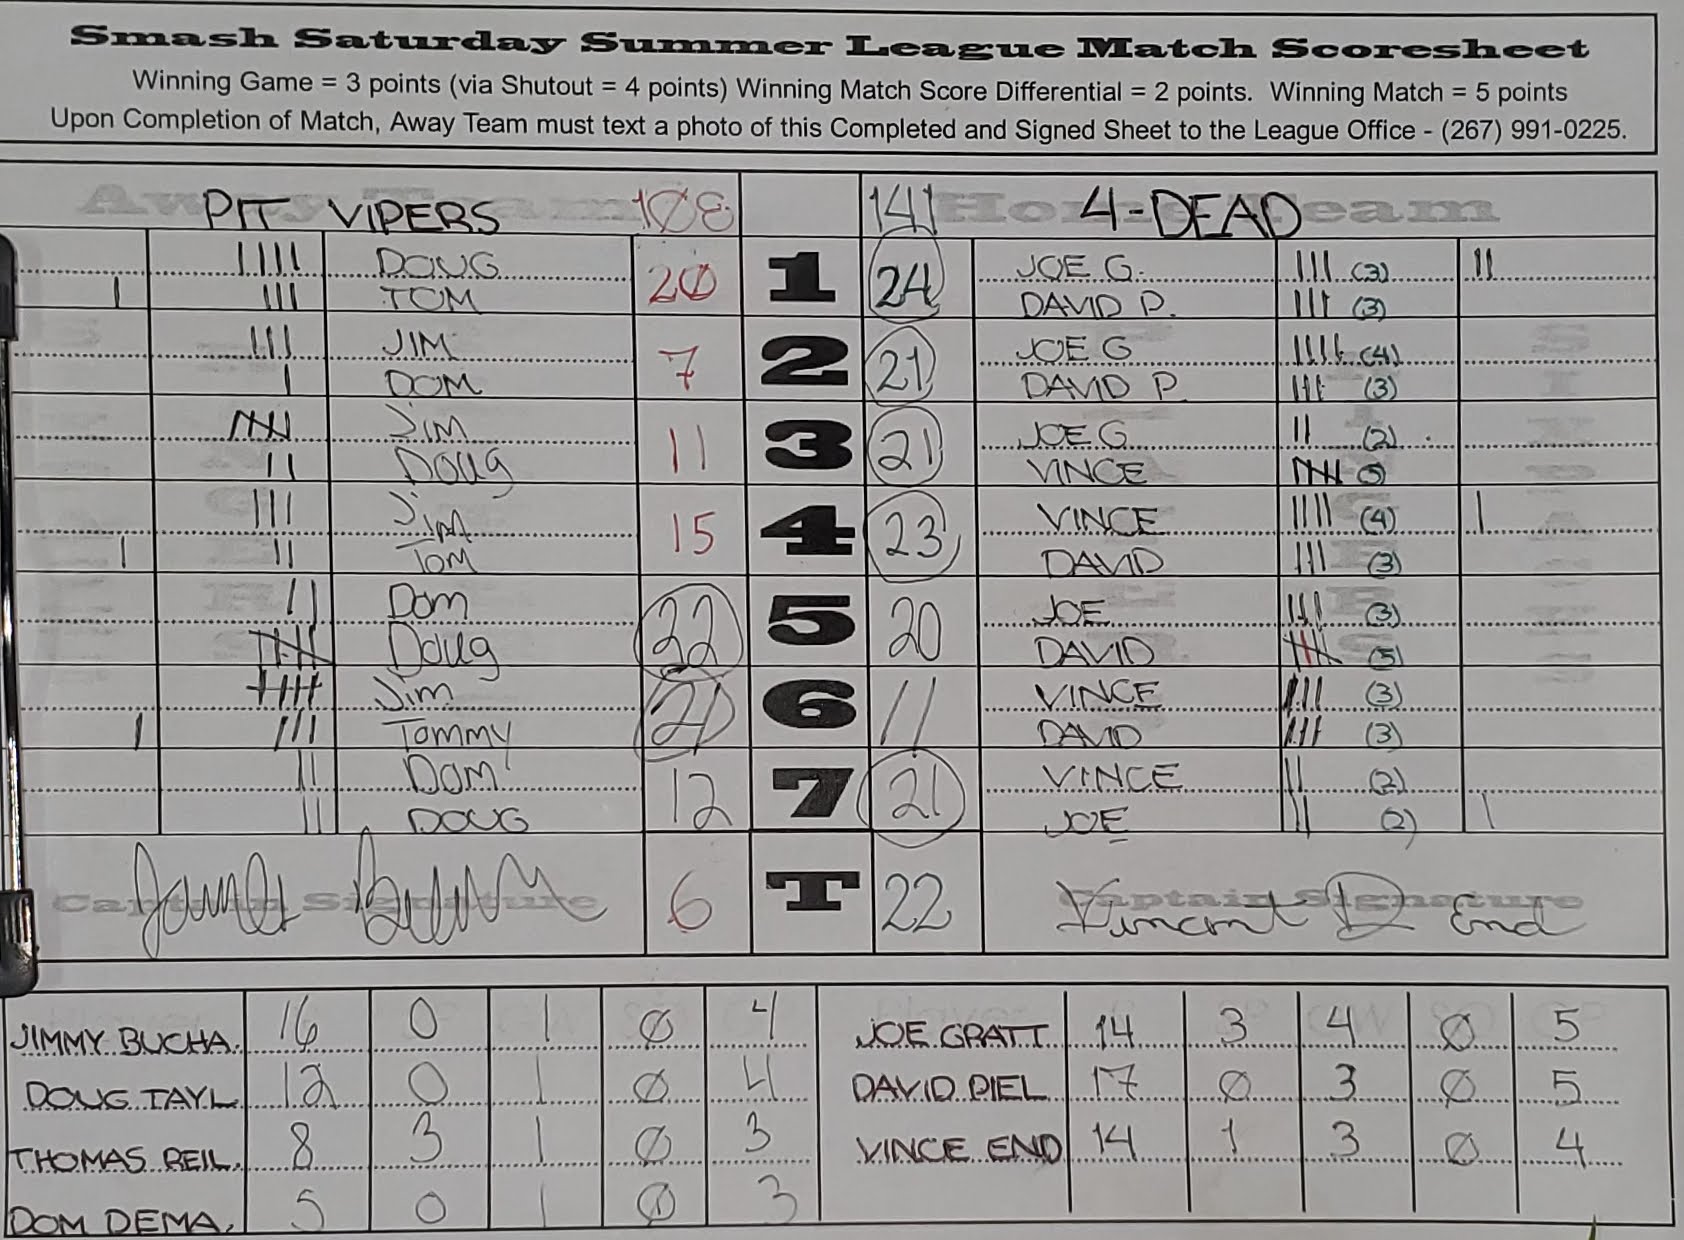 Smash Saturday Summer League Match Scoresheet
Winning Game = 3 points (via Shutout = 4 points) Winning Match Score Differential = 2 points. Winning Match = 5 points
Upon Completion of Match, Away Team must text a photo of this Completed and Signed Sheet to the League Office - (267) 991-0225.
PIT VIPERS 108 141 4-DEAD
Away Team Home Team
IIII DOUG JOE G. III (3) II
I III TOM DAVID P. III (3)
20 1 24
III JIM JOE G IIII (4)
I DOM DAVID P. III (3)
7 2 21
IIIII JIM JOE G II (2)
II Doug VINCE IIIII (5)
11 3 21
III Jim VINCE IIII (4) I
I II Tom DAVID III (3)
15 4 23
II Dom JOE III (3)
IIIII Doug DAVID IIIII (5)
22 5 20
IIIII Jim VINCE III (3)
I III Tommy DAVID III (3)
21 6 11
II DOM VINCE II (2)
II DOUG JOE II (2) I
12 7 21
Captain Signature 6 T 22 Captain Signature
Vincent D End
JIMMY BUCHA. 16 0 1 Ø 4 JOE GRATT. 14 3 4 Ø 5
DOUG TAYL 12 0 1 Ø 4 DAVID DIEL 17 Ø 3 Ø 5
THOMAS REIL. 8 3 1 Ø 3 VINCE END 14 1 3 Ø 4
DOM DEMA. 5 0 1 Ø 3